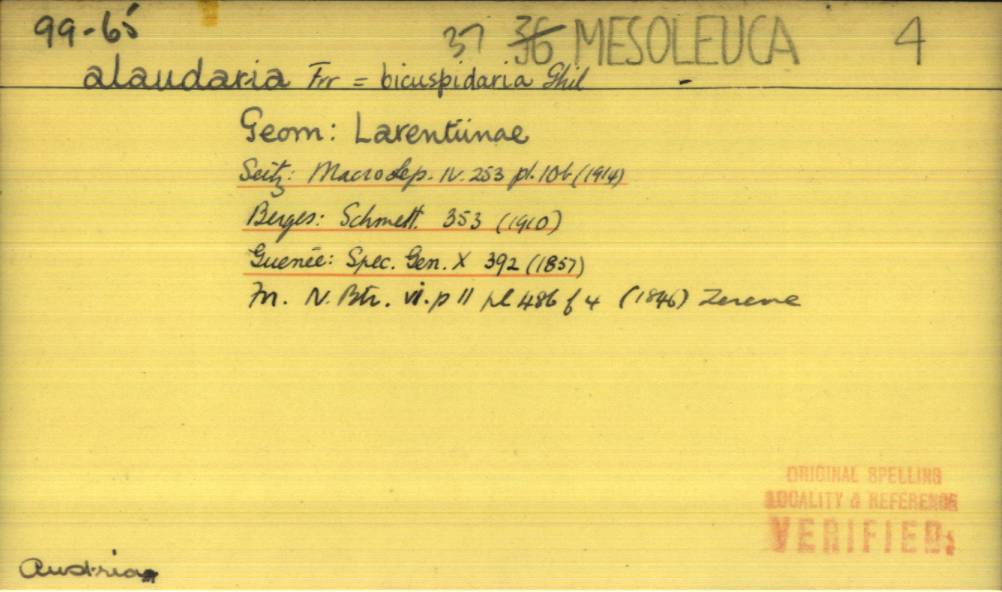 99-65 37 36 MESOLEUCA 4
alaudaria Frr = bicuspidaria Ghil -
Geom: Larentiinae
Seitz: Macrolep. IV. 253 pl. 10b (1914)
Berges: Schmett. 353 (1910)
Guenée: Spec. Gen. X 392 (1857)
Frr. N. Btr. vi. p 11 pl 486 f 4 (1846) Zerene
ORIGINAL SPELLING
LOCALITY & REFERENCE
VERIFIED
Austria